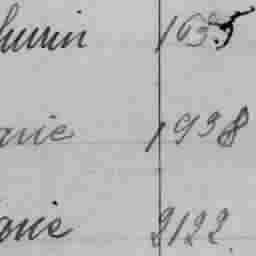 hurin 1635
arie 1938
arie 2122